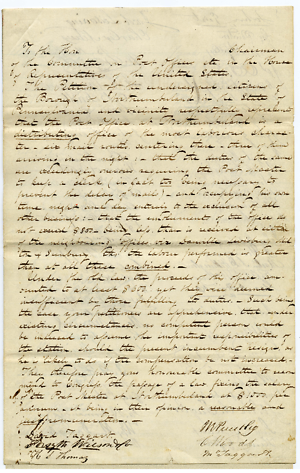 To the Hon. Chairman
of the Committee on Post Offices etc in the House
of Representatives of the United States.
The Petition of the undersigned citizens of
the Borough of Northumberland in the State of
Pennsylvania and vicinity respectfully represent
that the Post Office at Northumberland is a
distributing office of the most laborious charac-
ter - six mails centering there - three of them
arriving in the night; - that the duties of the same
are exceedingly onerous requiring the Post Master
to keep a clerk (a clerk too being necessary to
prevent the delay of mails) and occupying his own
time night and day entirely to the exclusion of all
other business; - that the emolument of the office do
not exceed $300 being less than is received at either
of the neighboring offices on Danville Lewisburg Mil-
ton & Sunbury tho' the labour performed is greater
than at all these combined. -
Under the old law the proceeds of the office am-
ounted to at least $500 yet this was deemed
insufficient by those fulfilling its duties. - Such being
the case your petitioners are apprehensive that under
existing circumstances no competent person could
be induced to assume the important responsibilities of
the station should the present incumbent resign as
he is likely to do if the compensation be not increased. -
They therefore pray your Honourable committee to recom
mend to Congress the passage of a law fixing the salary
of the Post Master at Northumberland at $ per
annum - it being in their opinion a reasonable and
just remuneration. -
David Taggart
H. J. Thomas
C Woods
M Taggart